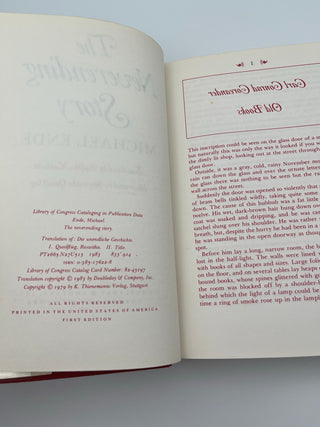 The
Neverending
Story
MICHAEL ENDE
Library of Congress Cataloging in Publication Data
Ende, Michael.
The neverending story.
Translation of: Die unendliche Geschichte.
I. Quadflieg, Roswitha. II. Title.
PT2665.N27U513 1983 833'.914
ISBN: 0-385-17622-8
Library of Congress Catalog Card Number:
Translation copyright © 1983 by Doubleday & Company, Inc.
Copyright © 1979 by K. Thienemanns Verlag, Stuttgart
ALL RIGHTS RESERVED
PRINTED IN THE UNITED STATES OF AMERICA
FIRST EDITION
1
Carl Conrad Coreander
Old Books
This inscription could be seen on the glass door of a sma
but naturally this was only the way it looked if you w
the dimly lit shop, looking out at the street through
glass door.
Outside, it was a gray, cold, rainy November mo
rain ran down the glass and over the ornate letters
the glass there was nothing to be seen but the ra
wall across the street.
Suddenly the door was opened so violently that
of brass bells tinkled wildly, taking quite some
down. The cause of this hubbub was a fat little
twelve. His wet, dark-brown hair hung down over
coat was soaked and dripping, and he was car
satchel slung over his shoulder. He was rather
breath, but, despite the hurry he had been in a
he was standing in the open doorway as though
spot.
Before him lay a long, narrow room, the b
lost in the half-light. The walls were lined
with books of all shapes and sizes. Large folios
on the floor, and on several tables lay heaps
bound books, whose spines glittered with go
the room was blocked off by a shoulder-hi
behind which the light of a lamp could be
time a ring of smoke rose up in the lamp